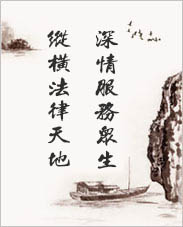 深情服務眾生
縱橫法律天地